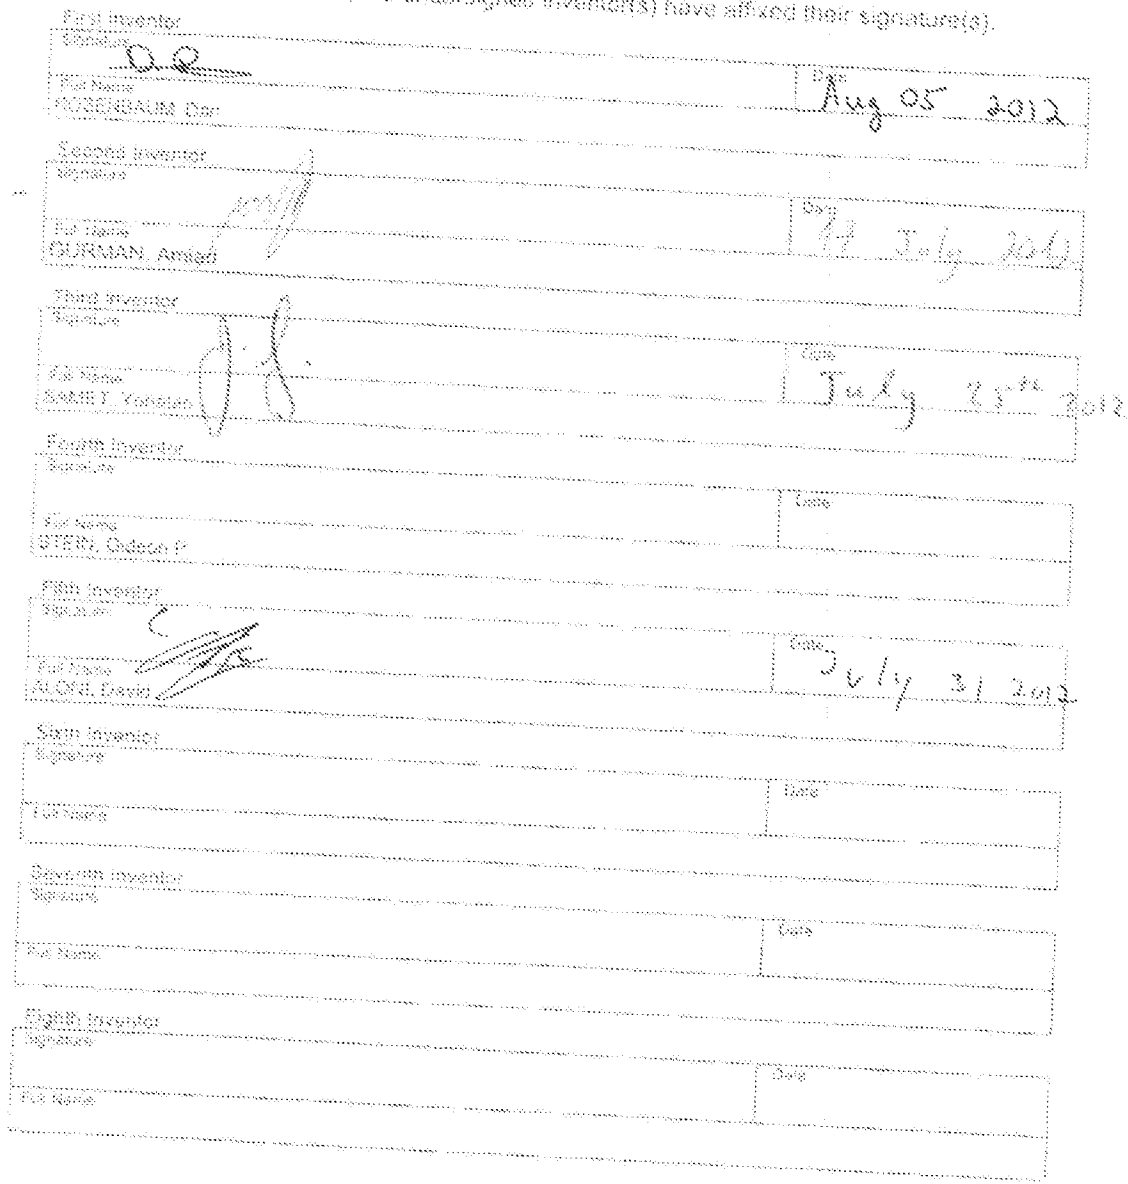 undersigned inventor(s) have affixed their signature(s).
First Inventor
Signature
Date
Aug 05 2012
Full Name
ROSENBAUM, Dan
Second Inventor
Signature
Date
July 2012
Full Name
GURMAN, Amiad
Third Inventor
Signature
Date
July 25th 2012
Full Name
SAMET, Yonatan
Fourth Inventor
Signature
Date
Full Name
STEIN, Gideon P.
Fifth Inventor
Signature
Date
July 31 2012
Full Name
ALONI, David
Sixth Inventor
Signature
Date
Full Name
Seventh Inventor
Signature
Date
Full Name
Eighth Inventor
Signature
Date
Full Name